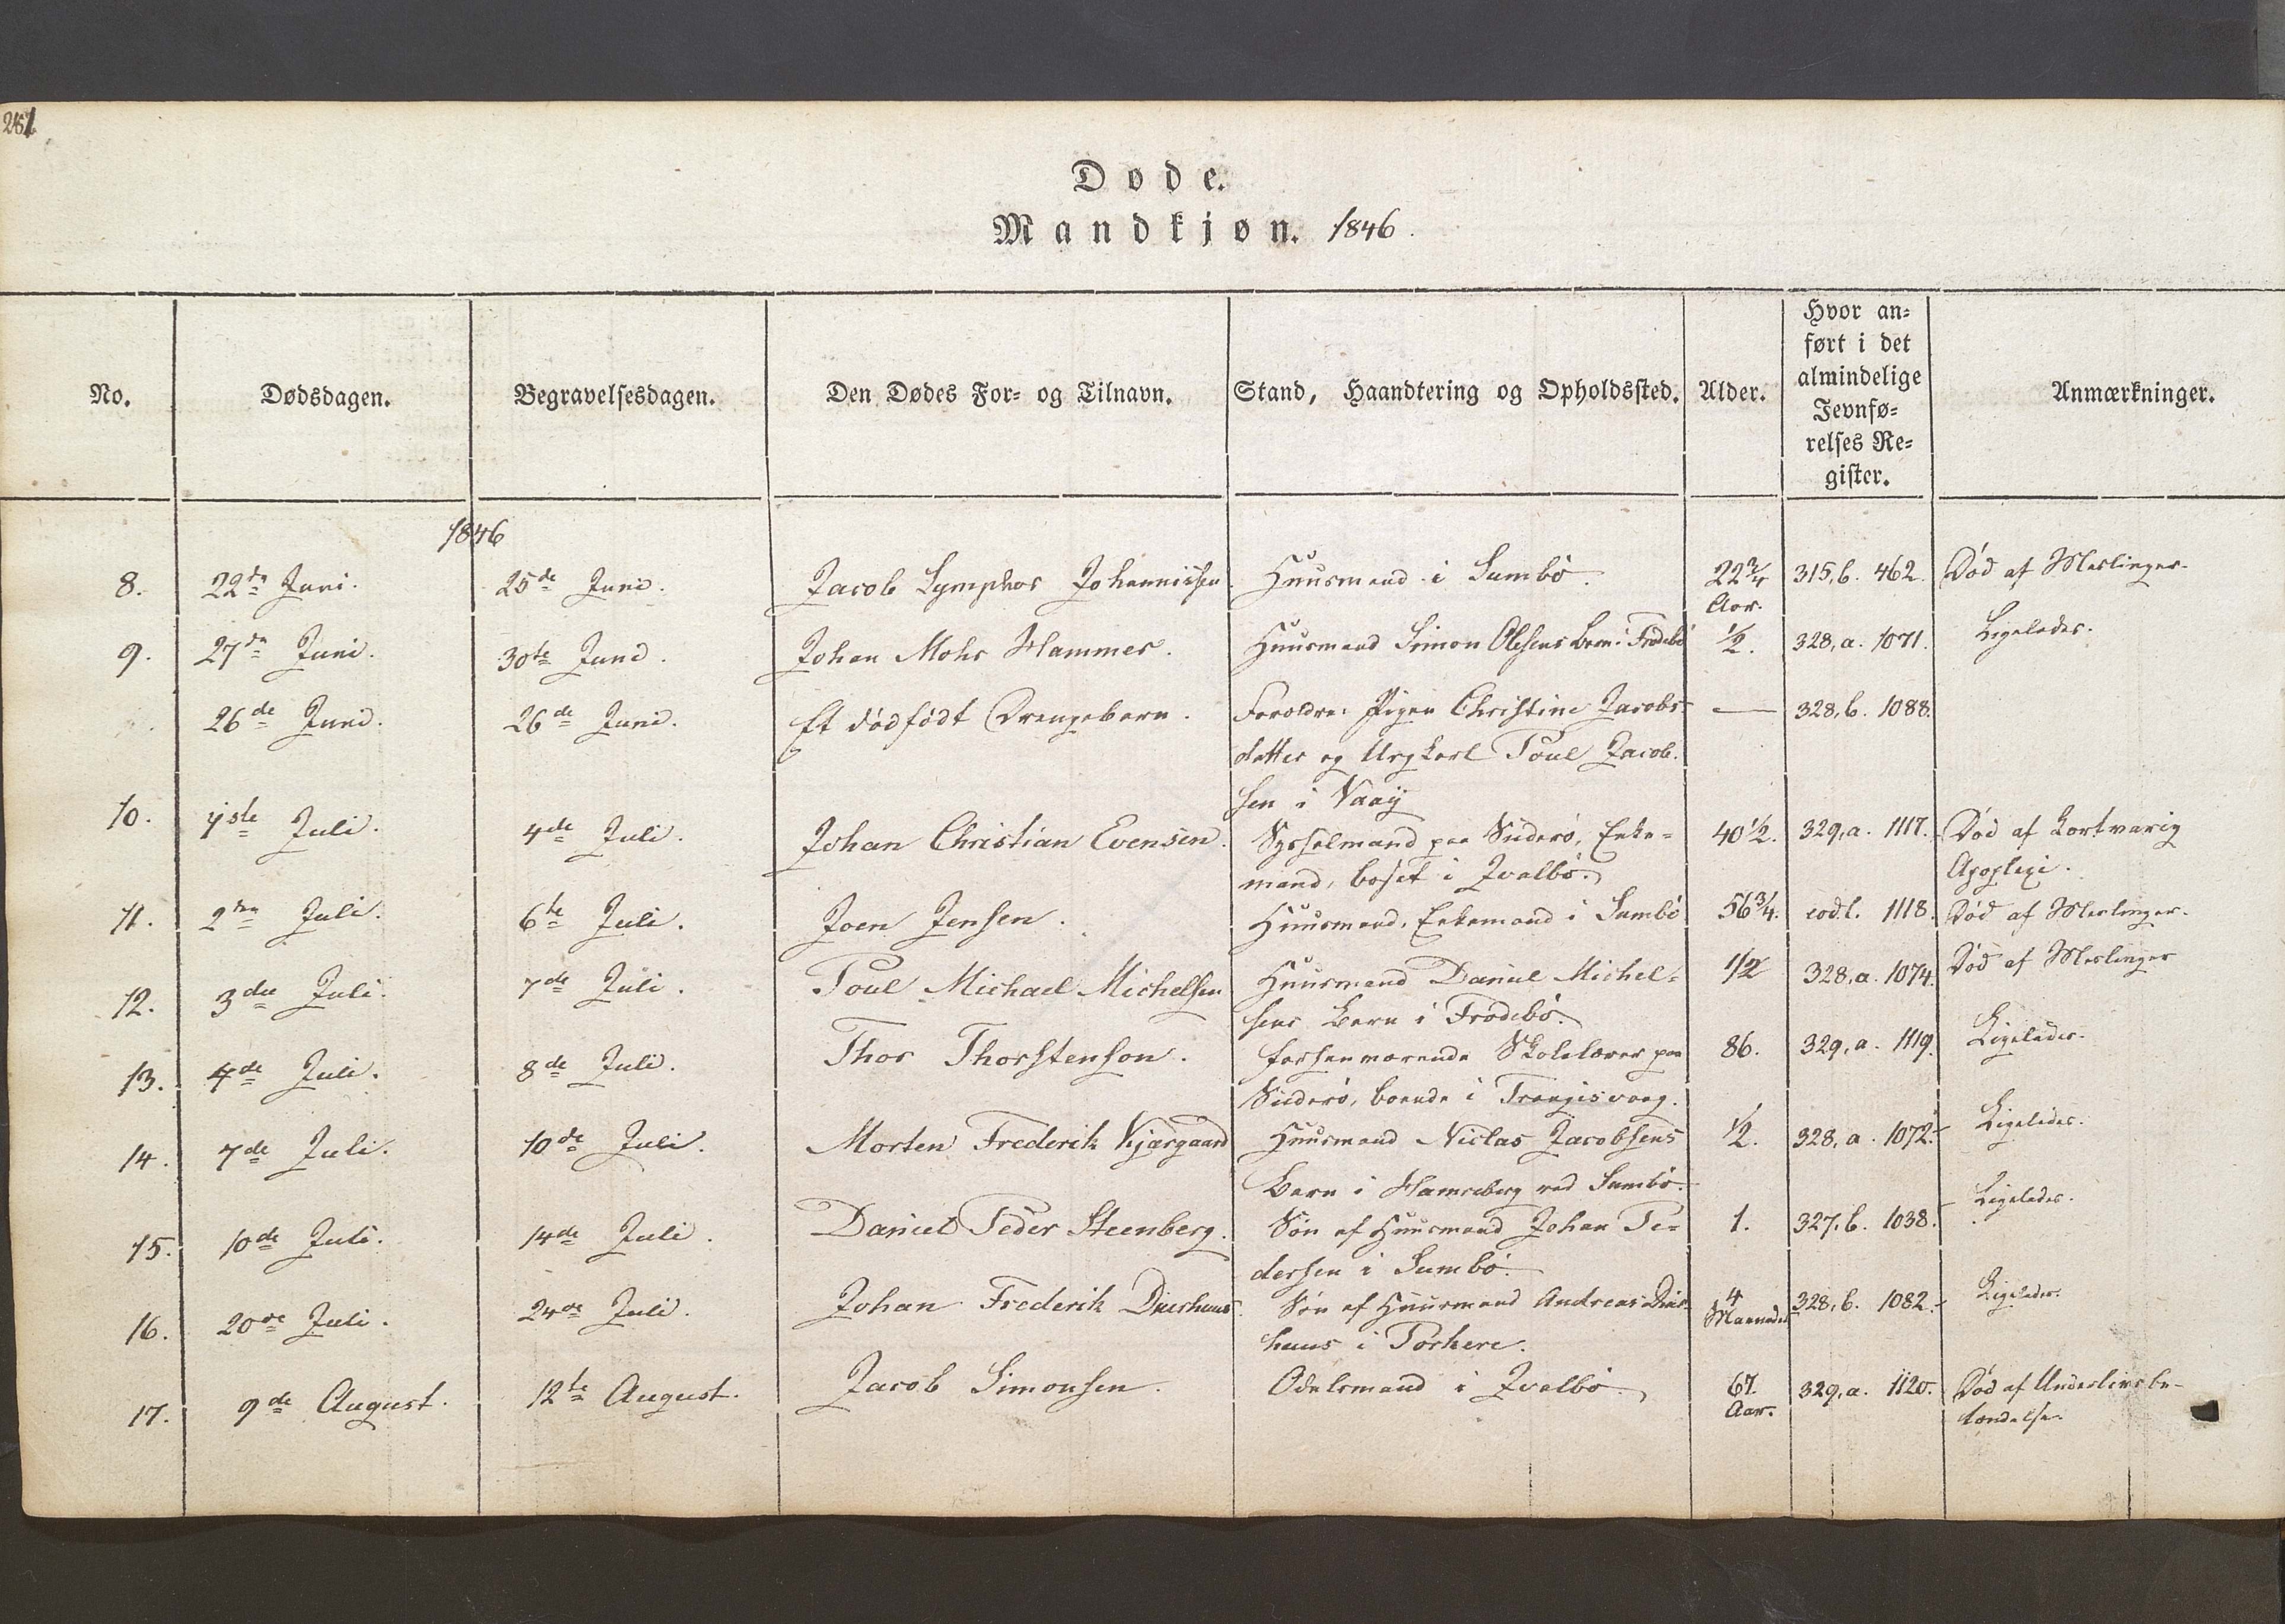 261
Døde.
Mandkjøn. 1846.
No. Dødsdagen. Begravelsesdagen. Den Dødes For- og Tilnavn. Stand, Haandtering og Opholdssted. Alder. Hvor an-
ført i det
almindelige
Jevnfø-
relses Re-
gister. Anmærkninger.
1846
8. 22de Juni. 25de Juni. Jacob Lymphor Johannissen Huusmand i Sumbö. 22 3/4 315, b. 462. Död af Meslinger.
Aar.
9. 27de Juni. 30te Juni. Johan Mohr Hammer. Huusmand Simon Olesens Barn i Frodebö 1/2. 328, a. 1071. Ligeledes.
26de Juni. 26de Juni. Et dödfödt Drengebarn. Forældre: Pigen Christine Jacobs- — 328, b. 1088.
datter og Ungkarl Poul Jacob-
sen i Vaaÿ
10. 1ste Juli. 4de Juli. Johan Christian Evensen. Sysselmand paa Suderö, Enke- 40 1/2. 329, a. 1117. Död af kortvarig
mand, bosat i Qvalbö. Apoplexi.
11. 2den Juli. 6te Juli. Joen Jensen. Huusmand, Enkemand i Sumbö 56 3/4. eod. l. 1118. Död af Meslinger.
12. 3die Juli. 7de Juli. Poul Michael Michelsen Huusmand Daniel Michel- 1/2 328, a. 1074. Död af Meslinger
sens Barn i Frodebö.
13. 4de Juli. 8de Juli. Thor Thorstenson. forhenværende Skolelærer paa 86. 329, a. 1119. Ligeledes.
Suderö, boende i Trangisvaag.
14. 7de Juli. 10de Juli. Morten Frederik Kjærgaard Huusmand Niclas Jacobsens 1/2. 328, a. 1072. Ligeledes.
Barn i Hamreberg ved Sumbö.
15. 10de Juli. 14de Juli. Daniel Peder Steenberg. Sön af Huusmand Johan Pe- 1. 327, b. 1038. Ligeledes.
dersen i Sumbö.
16. 20de Juli. 24de Juli. Johan Frederik Diurhuus. Sön af Huusmand Andreas Diur- 4 328, b. 1082. Ligeledes.
huus i Porkere. Maaneder
17. 9de August. 12te August. Jacob Simonsen. Odelsmand i Qvalbö. 67. 329, a. 1120. Död af Underlivsbe-
Aar. tændelse.